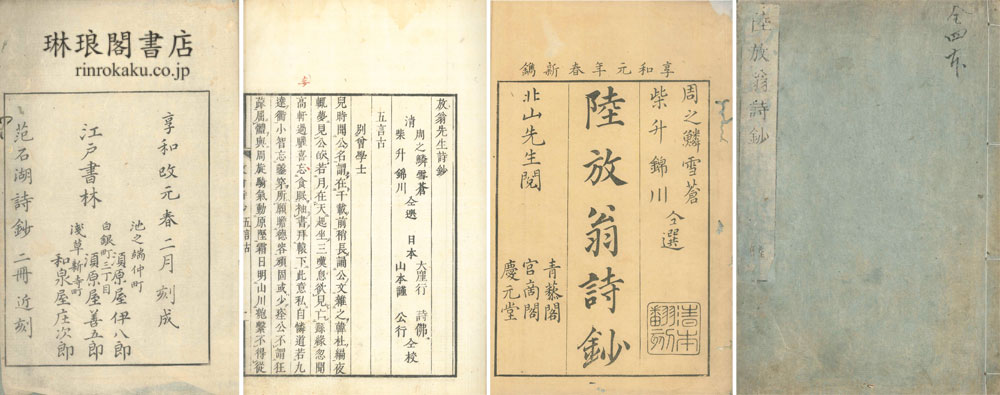 全四本
陸放翁詩鈔
享和元年春新鐫
周之鱗雪蒼
柴升錦川
仝選
陸放翁詩鈔
清本翻刻
北山先生閲
青藜閣
宮商閣
慶元堂
放翁先生詩鈔
清 周之鱗雪蒼 柴升錦川 仝選 日本 大窪行詩佛 山本謹公行 仝校
五言古
別曾學士
兒時聞公名謂在千載前稍長誦公文雜之韓杜編夜
輒夢見公皎若月在天起坐三嘆息欲見亡緣忽聞
高軒過驩喜忘食眠袖書拜轅下此意私自憐道若九
達衢小智妄鑿穿所願瞻德容頑固或少痊公不謂狂
疎屈體與周旋騎氣動原隰霜日明山川匏繫不得從
琳琅閣書店
rinrokaku.co.jp
享和改元春二月刻成
江戸書林
池之端仲町
須原屋伊八郎
白銀町二丁目
須原屋善五郎
淺草新寺町
和泉屋庄次郎
范石湖詩鈔 二冊 近刻